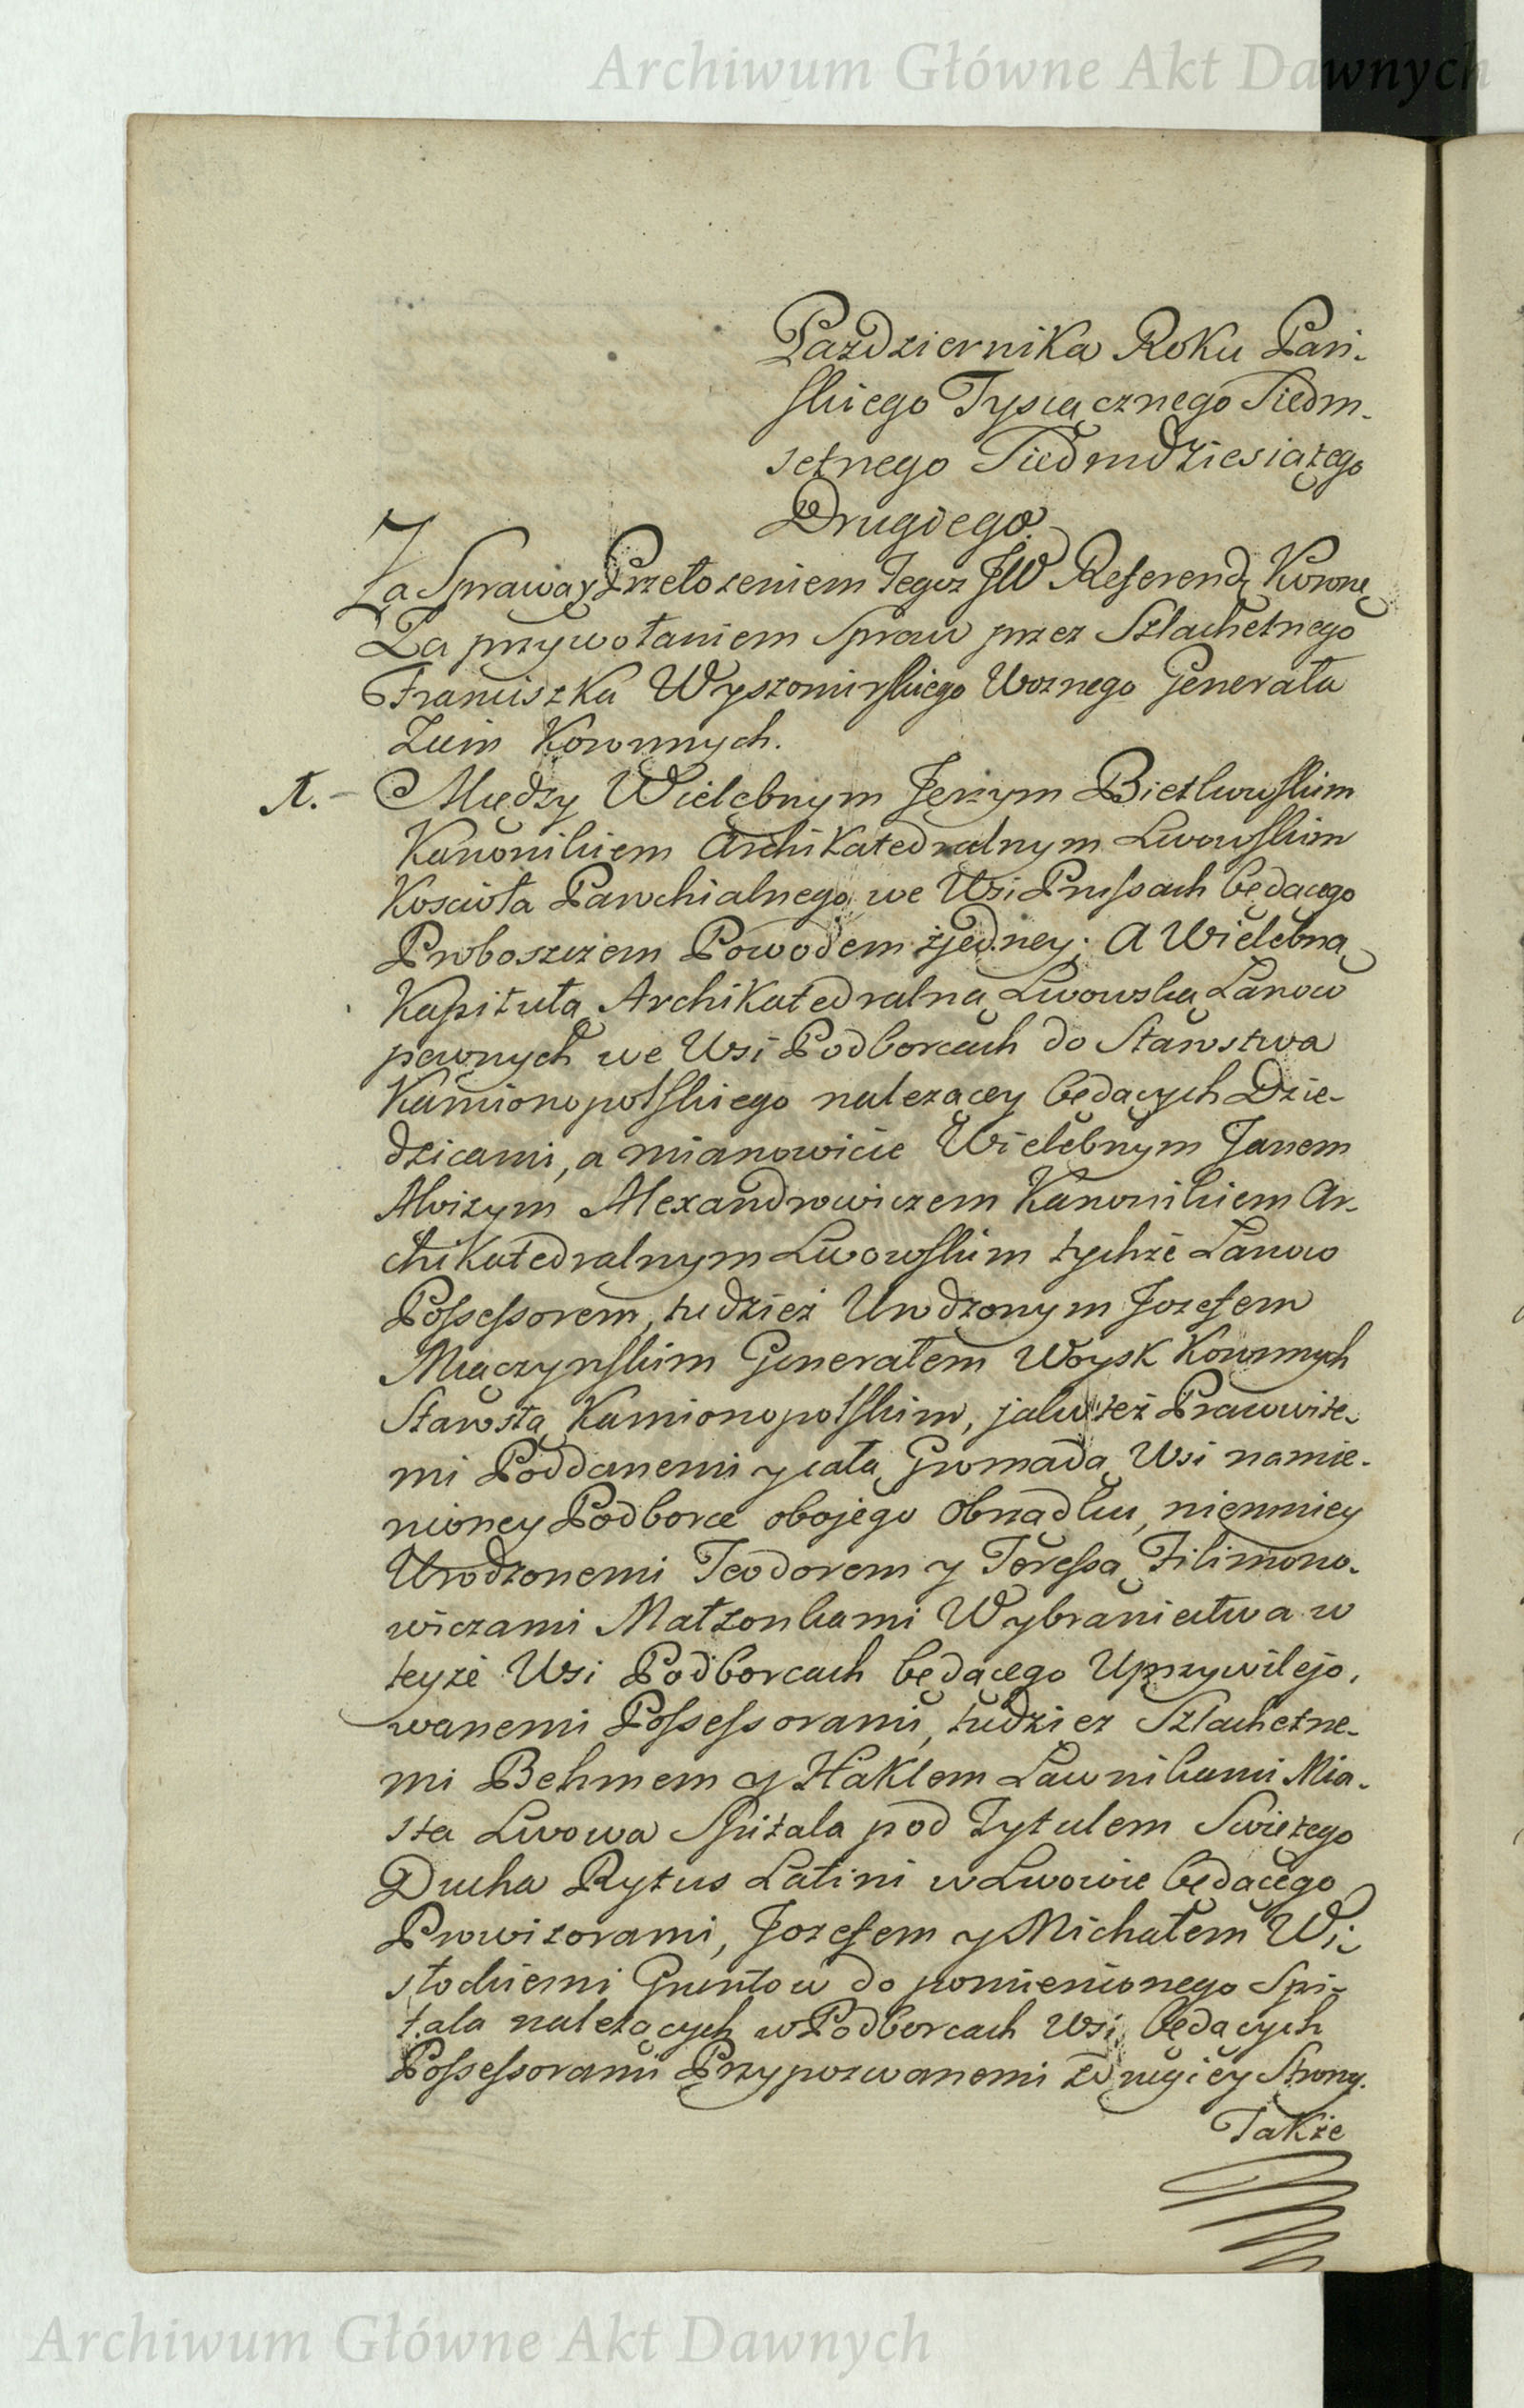 Archiwum Główne Akt Dawnych
Pazdziernika Roku Pań-
skiego Tysiącznego Siedm-
setnego Siedmdziesiątego
Drugiego.
Za Sprawą y Przełozeniem Tegoz JW Referendę Koronę
Za przywołaniem Spraw przez Szlachetnego
Franciszka Wyszomirskiego Woznego Generała
Ziem Koronnych.
1. - Między Wielebnym Jerzym Bietkowskim
Kanonikiem Archikatedralnym Lwowskim
Koscioła Parochialnego we Wsi Prussach będącego
Proboszczem Powodem zjedney; A Wielebną
Kapitułą Archikatedralną Lwowską Łanow
pewnych we Wsi Podborcach do Starostwa
Kamionopolskiego nalezącey będących Dzie-
dzicami, a mianowicie Wielebnym Janem
Aloizym Alexandrowiczem Kanonikiem Ar-
chikatedralnym Lwowskim tychże Łanow
Possessorem, tudzież Urodzonym Jozefem
Miączynskim Generałem Woysk Koronnych
Starostą Kamionopolskim, jako też Prawowite-
mi Poddanemi y całą Gromadą Wsi namie-
nioney Podborce obojego Obrządku, niemniey
Urodzonemi Teodorem y Teressą Filimono-
wiczami Małzonkami Wybraniectwa w
teyże Wsi Podborcach będącego Uprzywilejo-
wanemi Possessorami, tudziez Szlachetne-
mi Behmem y Haklem Ławnikami Mia-
sta Lwowa Szpitala pod Tytulem Swietego
Ducha Rytus Latini w Lwowie będącego
Prowizorami, Jozefem y Michałem Wi-
słockiemi Gruntow do pomienionego Szpi-
tala nalezących w Podborcach Wsi będących
Possessorami Przypozwanemi z drugiey Strony.
Także
Archiwum Główne Akt Dawnych